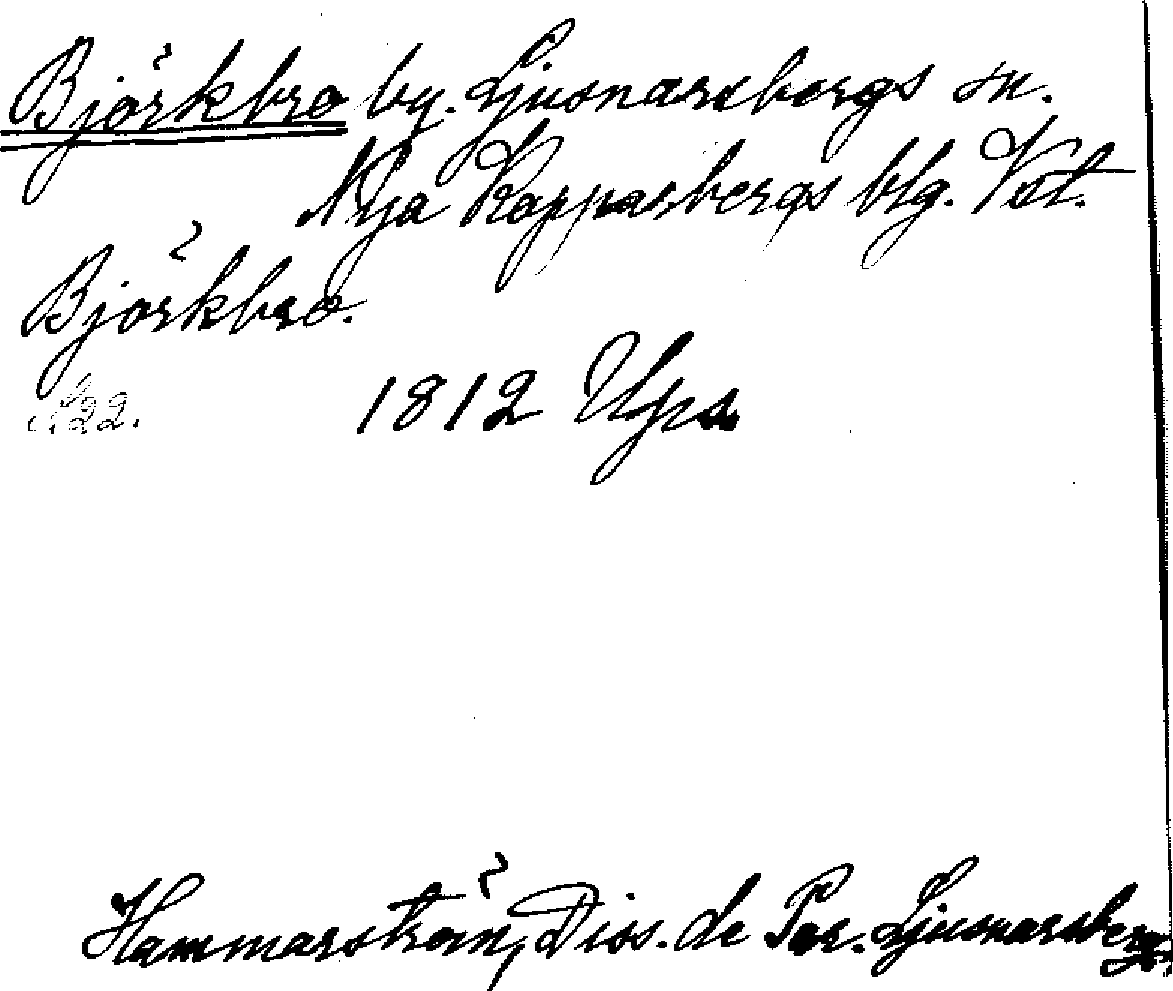 Björkbro by. Ljusnarsbergs sn.
Nya Kopparbergs blg. Vstl.
Björkbro.
s. 22. 1812 Ups.
Hammarström, Diss. de Par. Ljusnarsberg.